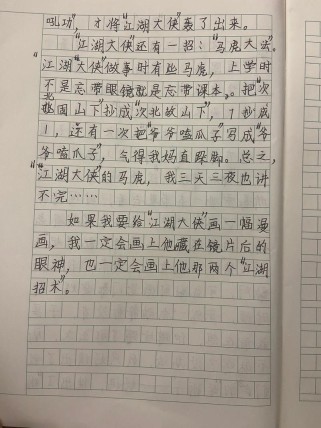 吼功”，才将“江湖大侠”轰了出来。
“江湖大侠”还有一招：“马虎大法”。
“江湖大侠”做事时有些马虎，上学时
不是忘带眼镜就是忘带课本。把“次
北固山下”抄成“次北故山下”，7抄成
1，还有一次把“爷爷嗑瓜子”写成“爷
爷嗑瓜子”，气得我妈直跺脚。总之，
“江湖大侠”的马虎，我三天三夜也讲
不完……
如果我要给“江湖大侠”画一幅漫
画，我一定会画上他藏在镜片后的
眼神，也一定会画上他那两个“江湖
招术”。